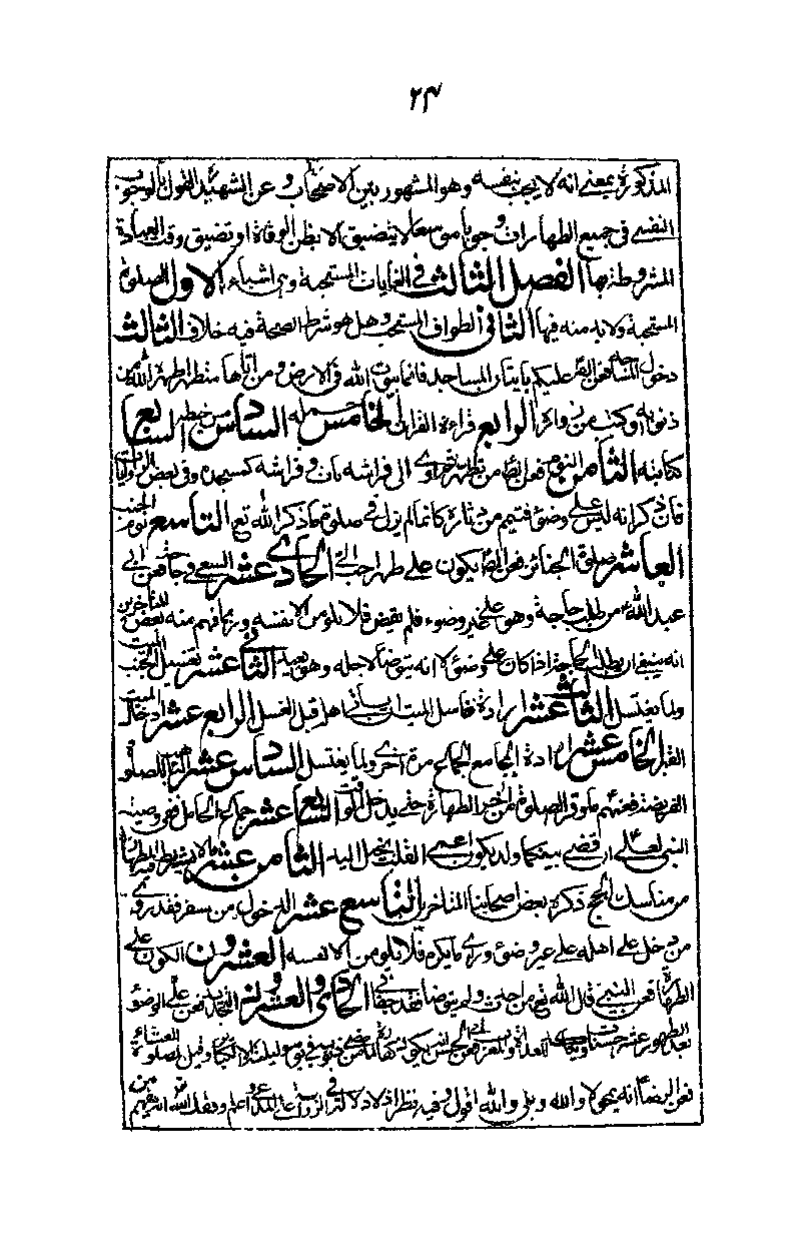 ٢٤
المذكورة بمعنى انه لا يجب بنفسه وهو المشهور بين الاصحاب و عن الشهيد القول بالوجوب
النفسي في جميع الطهارات وجوبا موسعا لا يتضيق الا بظن الوفاة او تضيق وقت العبادة
المشروطة بها الفصل الثالث في الغايات المستحبة وهي اشياء الاول الصلوة
المستحبة ولابد منه فيها الثاني الطواف المستحب وهل هو شرط الصحة فيه خلاف الثالث
دخول المساجد فعن عليكم باتيان المساجد فانها بيوت الله في الارض ومن اتاها متطهرا طهره الله من
ذنوبه وكتب من زواره الرابع قراءة القران الخامس حمله السادس مس خطه السابع
كتابته الثامن النوم فعن من تطهر ثم اوى الى فراشه بات و فراشه كمسجده وفي بعض الروايات
فان ذكر انه ليس على وضوء فتيمم من دثاره كائنا لم يزل في صلوة ما ذكر الله تع التاسع نوم الجنب
العاشر صلوة الجنائز فعن يكون على طهر احب الي الحادي عشر السعي في حاجة فعن ابي
عبد الله ع من طلب حاجة وهو على غير وضوء فلم تقض فلا يلومن الا نفسه وربما فهم منه بعض المتأخرين
انه ينبغي ان يطلب الحاجة اذا كان على وضوء لا انه يتوضأ لاجله وهو بعيد الثاني عشر تغسيل الجنب الميت
ولما يغتسل الثالث عشر ارادة غاسل الميت اتيان اهله قبل الغسل الرابع عشر ادخال الميت
القبر الخامس عشر ارادة المجامع الجماع مرة اخرى ولما يغتسل السادس عشر التأهب للصلوة
الفريضة فعنهم ما وقر الصلوة من اخر الطهارة حتى يدخل الوقت السابع عشر جماع الحامل ففي وصية
النبي لعلي ان قضي بينكما ولد يكون اعمى القلب بخيل اليد الثامن عشر ما لا يشترط فيه الطهارة
من مناسك الحج ذكره بعض اصحابنا المتأخرين التاسع عشر الدخول من سفر فقد روي
من دخل على اهله على غير وضوء وراى ما يكره فلا يلومن الا نفسه العشرون الكون على
الطهارة فعن النبي قال الله تع من احدث ولم يتوضأ فقد جفاني الحادي والعشرون التجديد فعن علي الوضوء
بعد الطهور عشر حسنات الغداة والمغرب فعن ابي الحسن يكون كفارة لما مضى من ذنوبه في يومه وليلته الا الكبائر وقيل لصلوة العشاء
فعن الرضا انه يمحو لا والله و بلى والله اقول وفيه نظر اذ لا دلالة في الرواية على المدعى اعلم وفقك الله انه يفهم من